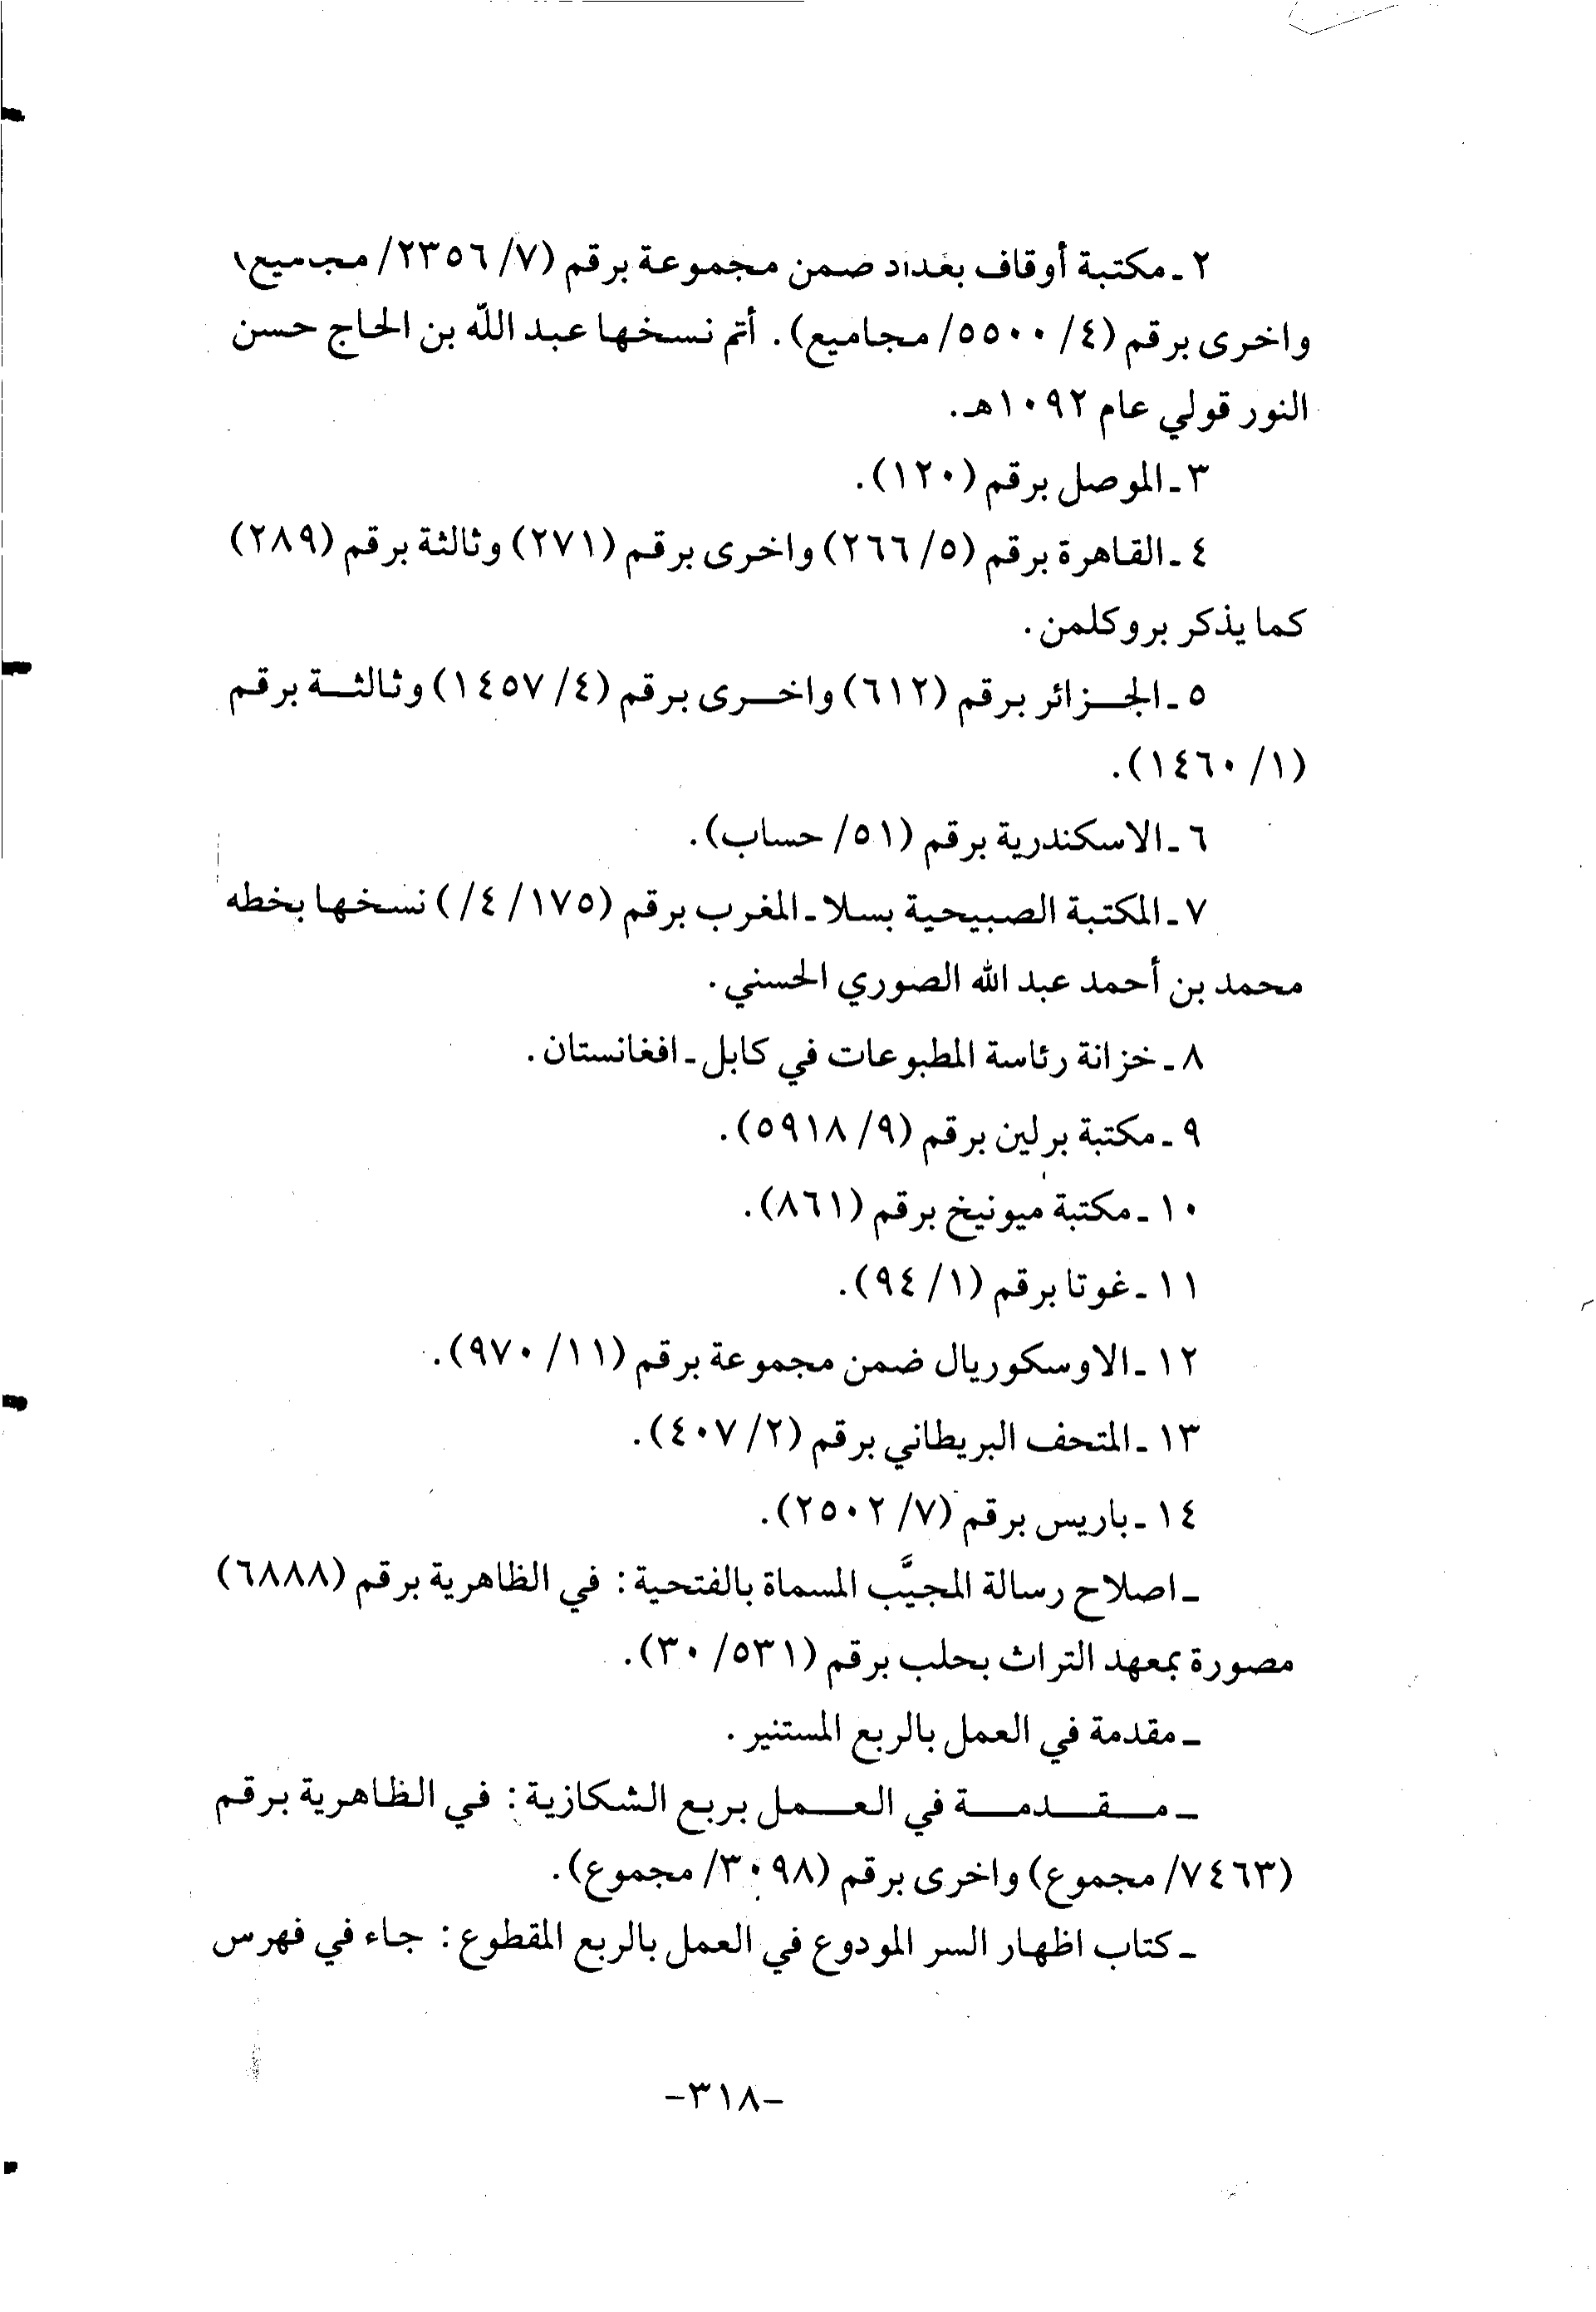 ٢ ـ مكتبة أوقاف بغداد ضمن مجموعة برقم (٧/ ٢٣٥٦/ مجاميع)
واخرى برقم (٤/ ٥٥٠٠/ مجاميع). أتم نسخها عبد اللّه بن الحاج حسن
النور قولي عام ١٠٩٢هـ.
٣ ـ الموصل برقم (١٢٠).
٤ ـ القاهرة برقم (٥/ ٢٦٦) واخرى برقم (٢٧١) وثالثة برقم (٢٨٩)
كما يذكر بروكلمن.
٥ ـ الجـزائر برقم (٦١٢) واخـرى برقم (٤/ ١٤٥٧) وثالثـة برقم
(١/ ١٤٦٠).
٦ ـ الاسكندرية برقم (٥١/ حساب).
٧ ـ المكتبة الصبيحية بسلا ـ المغرب برقم (١٧٥/ ٤/) نسخها بخطه
محمد بن أحمد عبد الله الصوري الحسني.
٨ ـ خزانة رئاسة المطبوعات في كابل ـ افغانستان.
٩ ـ مكتبة برلين برقم (٩/ ٥٩١٨).
١٠ ـ مكتبة ميونيخ برقم (٨٦١).
١١ ـ غوتا برقم (١/ ٩٤).
١٢ ـ الاوسكوريال ضمن مجموعة برقم (١١/ ٩٧٠).
١٣ ـ المتحف البريطاني برقم (٢/ ٤٠٧).
١٤ ـ باريس برقم (٧/ ٢٥٠٢).
ـ اصلاح رسالة المجيَّب المسماة بالفتحية: في الظاهرية برقم (٦٨٨٨)
مصورة بمعهد التراث بحلب برقم (٥٣١/ ٣٠).
ـ مقدمة في العمل بالربع المستنير.
ـ مـقـدمـة في العـمل بربع الشكازية: في الظاهرية برقم
(٧٤٦٣/ مجموع) واخرى برقم (٣٠٩٨/ مجموع).
ـ كتاب اظهار السر المودوع في العمل بالربع المقطوع: جاء في فهرس
-٣١٨-